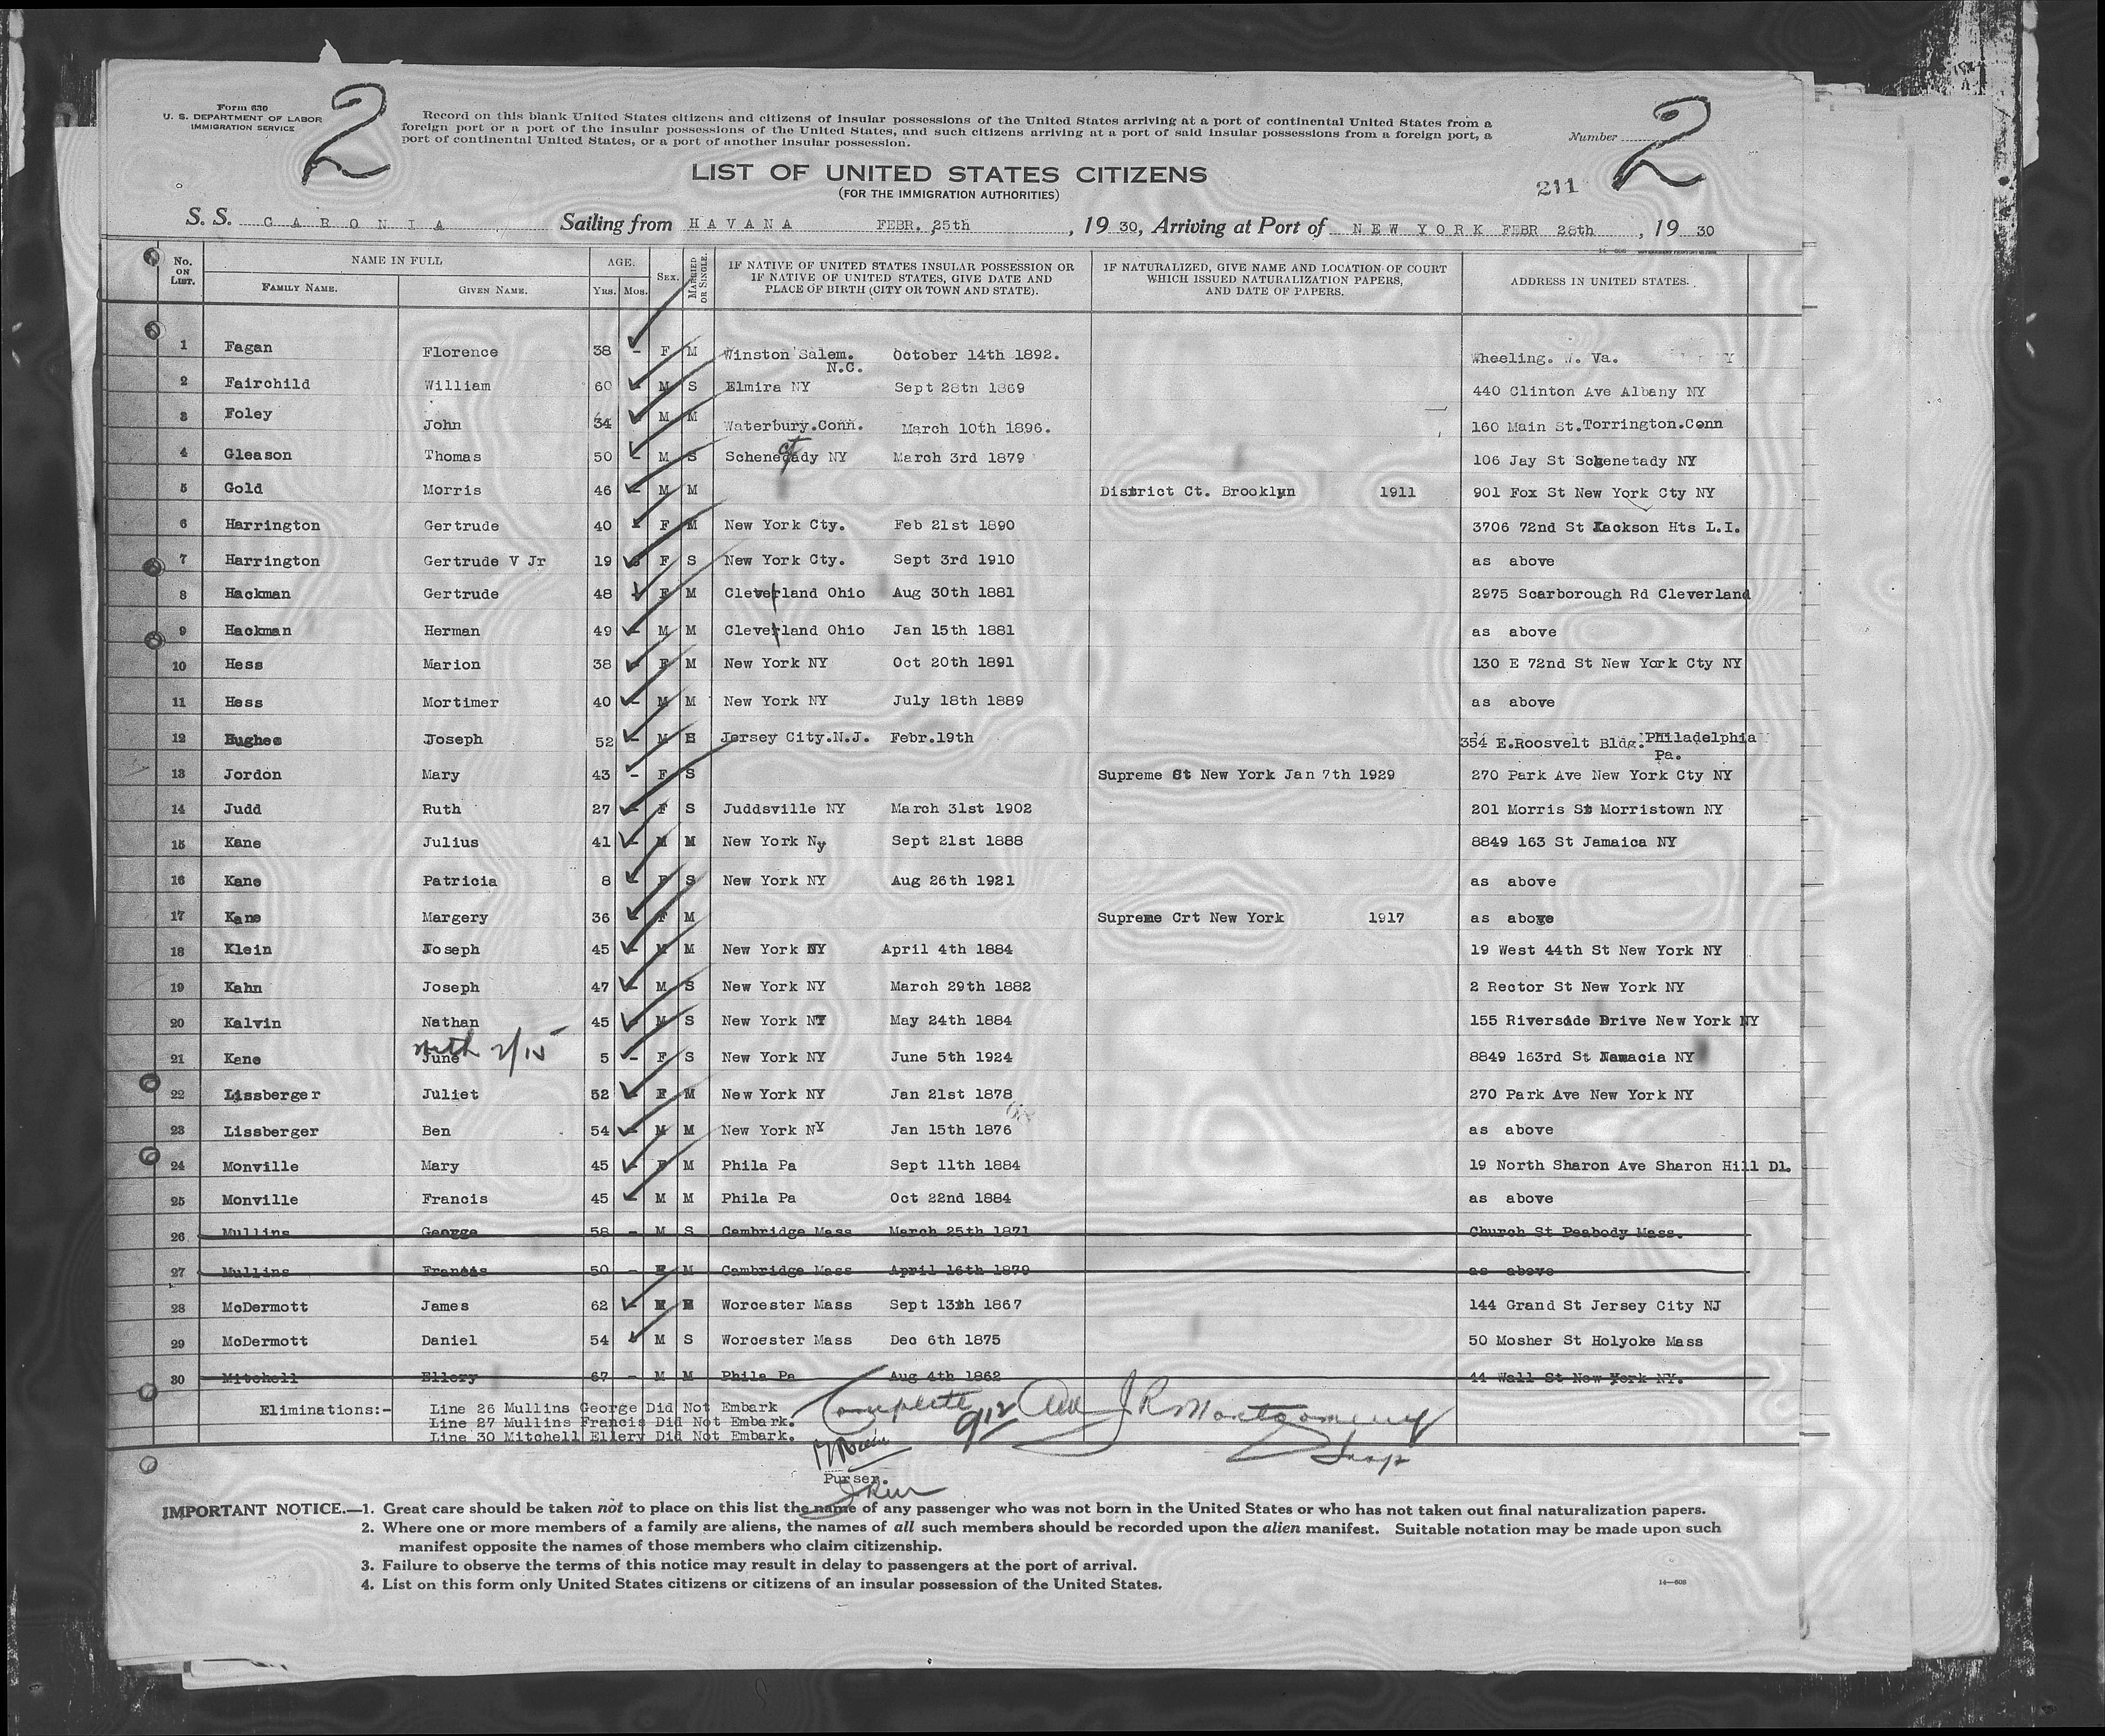 Form 630
U. S. DEPARTMENT OF LABOR
IMMIGRATION SERVICE
2
Record on this blank United States citizens and citizens of insular possessions of the United States arriving at a port of continental United States from a
foreign port or a port of the insular possessions of the United States, and such citizens arriving at a port of said insular possessions from a foreign port, a
port of continental United States, or a port of another insular possession.
Number 2
LIST OF UNITED STATES CITIZENS
(FOR THE IMMIGRATION AUTHORITIES)
211
S. S. CARONIA Sailing from HAVANA FEBR. 25th, 19 30, Arriving at Port of NEW YORK FEBR 28th, 19 30
No. ON LIST. NAME IN FULL FAMILY NAME. GIVEN NAME. AGE. YRS. MOS. SEX. MARRIED OR SINGLE. IF NATIVE OF UNITED STATES INSULAR POSSESSION OR IF NATIVE OF UNITED STATES, GIVE DATE AND PLACE OF BIRTH (CITY OR TOWN AND STATE). IF NATURALIZED, GIVE NAME AND LOCATION OF COURT WHICH ISSUED NATURALIZATION PAPERS, AND DATE OF PAPERS. ADDRESS IN UNITED STATES.
1 Fagan Florence 38 - F M Winston Salem. N.C. October 14th 1892. Wheeling. W. Va.
2 Fairchild William 60 - M S Elmira NY Sept 28th 1869 440 Clinton Ave Albany NY
3 Foley John 34 M M Waterbury.Conn. March 10th 1896. 160 Main St.Torrington.Conn
4 Gleason Thomas 50 - M S Schenectady NY March 3rd 1879 106 Jay St Schenetady NY
5 Gold Morris 46 - M M District Ct. Brooklyn 1911 901 Fox St New York Cty NY
6 Harrington Gertrude 40 - F M New York Cty. Feb 21st 1890 3706 72nd St Jackson Hts L.I.
7 Harrington Gertrude V Jr 19 F S New York Cty. Sept 3rd 1910 as above
8 Hackman Gertrude 48 - F M Cleverland Ohio Aug 30th 1881 2975 Scarborough Rd Cleverland
9 Hackman Herman 49 - M M Cleverland Ohio Jan 15th 1881 as above
10 Hess Marion 38 - F M New York NY Oct 20th 1891 130 E 72nd St New York Cty NY
11 Hess Mortimer 40 - M M New York NY July 18th 1889 as above
12 Hughes Joseph 52 - M Jersey City.N.J. Febr.19th 354 E.Roosvelt Bldg. Philadelphia Pa.
13 Jordon Mary 43 - F S Supreme Ct New York Jan 7th 1929 270 Park Ave New York Cty NY
14 Judd Ruth 27 - F S Juddsville NY March 31st 1902 201 Morris St Morristown NY
15 Kane Julius 41 - M M New York Ny Sept 21st 1888 8849 163 St Jamaica NY
16 Kane Patricia 8 - F S New York NY Aug 26th 1921 as above
17 Kane Margery 36 - F M Supreme Crt New York 1917 as above
18 Klein Joseph 45 - M M New York NY April 4th 1884 19 West 44th St New York NY
19 Kahn Joseph 47 - M S New York NY March 29th 1882 2 Rector St New York NY
20 Kalvin Nathan 45 - M S New York NY May 24th 1884 155 Riverside Drive New York NY
with 2/15
21 Kane June 5 - F S New York NY June 5th 1924 8849 163rd St Jamacia NY
22 Lissberger Juliet 52 - F M New York NY Jan 21st 1878 270 Park Ave New York NY
23 Lissberger Ben 54 - M M New York NY Jan 15th 1876 as above
24 Monville Mary 45 - F M Phila Pa Sept 11th 1884 19 North Sharon Ave Sharon Hill Dl.
25 Monville Francis 45 - M M Phila Pa Oct 22nd 1884 as above
26 Mullins George 58 - M S Cambridge Mass March 25th 1871 Church St Peabody Mass.
27 Mullins Francis 50 - F M Cambridge Mass April 16th 1879 as above
28 McDermott James 62 - Worcester Mass Sept 13th 1867 144 Grand St Jersey City NJ
29 McDermott Daniel 54 M S Worcester Mass Dec 6th 1875 50 Mosher St Holyoke Mass
30 Mitchell Ellery 67 - M M Phila Pa Aug 4th 1862 44 Wall St New York NY.
Eliminations:- Line 26 Mullins George Did Not Embark
Line 27 Mullins Francis Did Not Embark.
Line 30 Mitchell Ellery Did Not Embark.
Complete 912 J R Montgomery
Insp
Purser.
IMPORTANT NOTICE.—1. Great care should be taken not to place on this list the name of any passenger who was not born in the United States or who has not taken out final naturalization papers.
2. Where one or more members of a family are aliens, the names of all such members should be recorded upon the alien manifest. Suitable notation may be made upon such
manifest opposite the names of those members who claim citizenship.
3. Failure to observe the terms of this notice may result in delay to passengers at the port of arrival.
4. List on this form only United States citizens or citizens of an insular possession of the United States.
14—608